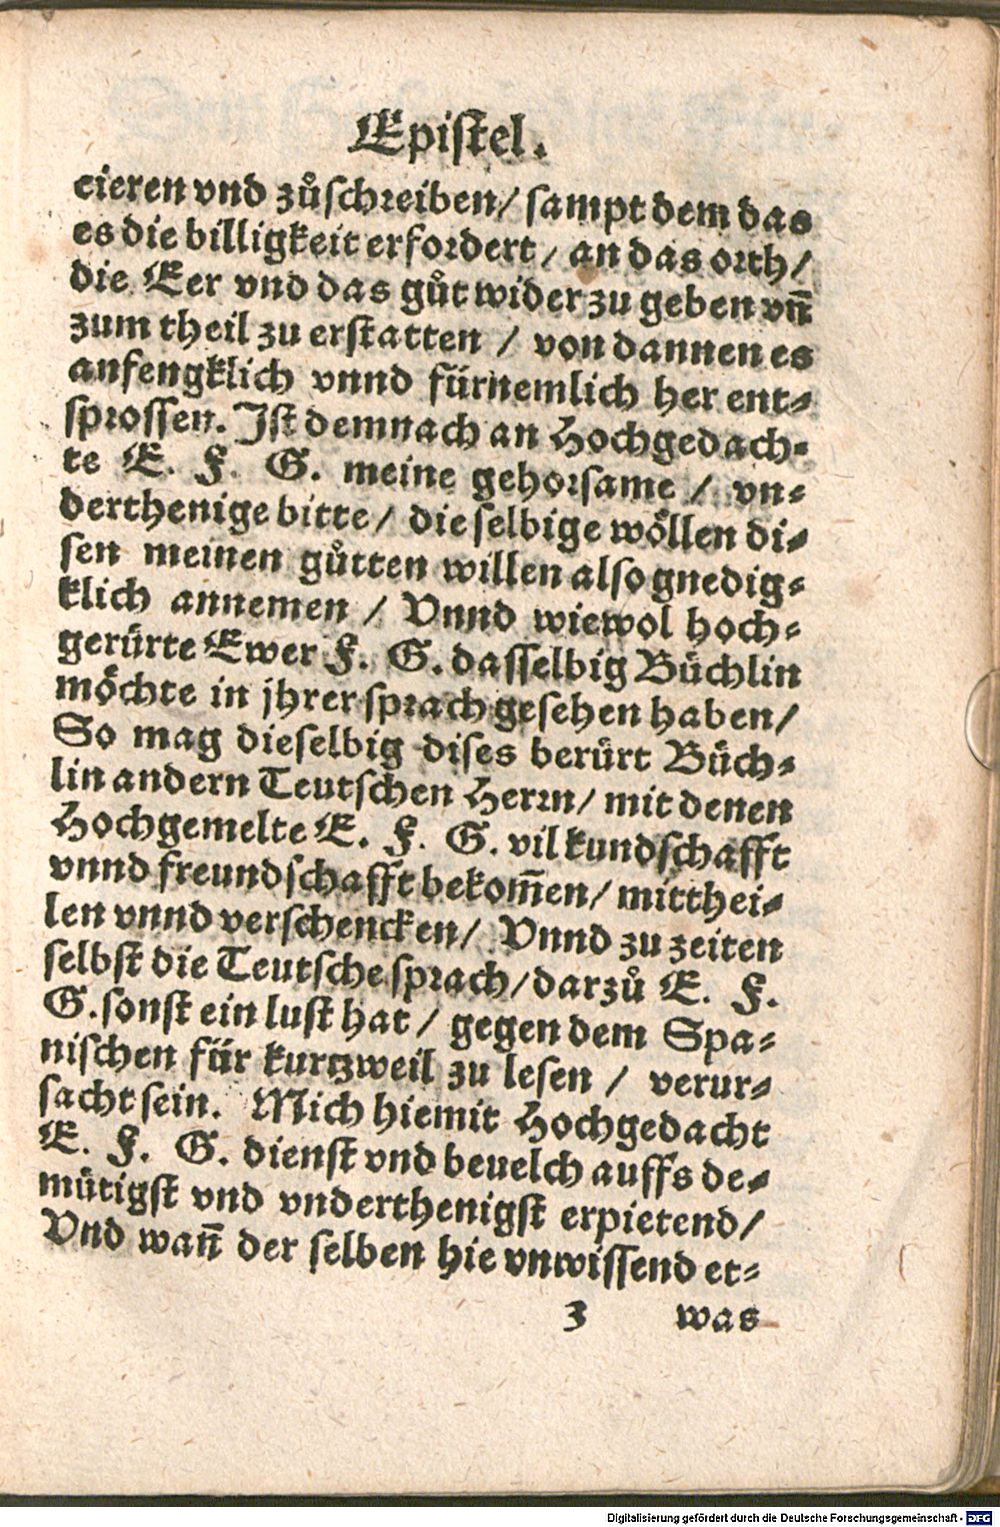 Epistel.
cieren vnd zůschreiben/ sampt dem das
es die billigkeit erfordert/ an das orth/
die Eer vnd das gůt wider zu geben vn̄
zum theil zu erstatten / von dannen es
anfengklich vnnd fürnemlich her ent⸗
sprossen. Ist demnach an Hochgedach⸗
te E. F. G. meine gehorsame / vn⸗
derthenige bitte/ dieselbige wöllen di⸗
sen meinen gůtten willen also gnedig⸗
klich annemen / Vnnd wiewol hoch⸗
gerürte Ewer F. G. dasselbig Büchlin
möchte in jhrer sprach gesehen haben/
So mag dieselbig dises berürt Büch⸗
lin andern Teutschen Herrn/ mit denen
Hochgemelte E. F. G. vil kundschafft
vnnd freundschafft bekom̄en/ mitthei⸗
len vnnd verschencken/ Vnnd zu zeiten
selbst die Teutsche sprach/ darzů E. F.
G. sonst ein lust hat/ gegen dem Spa⸗
nischen für kurtzweil zu lesen / verur⸗
sacht sein. Mich hiemit Hochgedacht
E. F. G. dienst vnd beuelch auffs de⸗
mütigst vnd vnderthenigst erpietend/
Vnd wan̄ der selben hie vnwissend et⸗
3 was
Digitalisierung gefördert durch die Deutsche Forschungsgemeinschaft - DFG